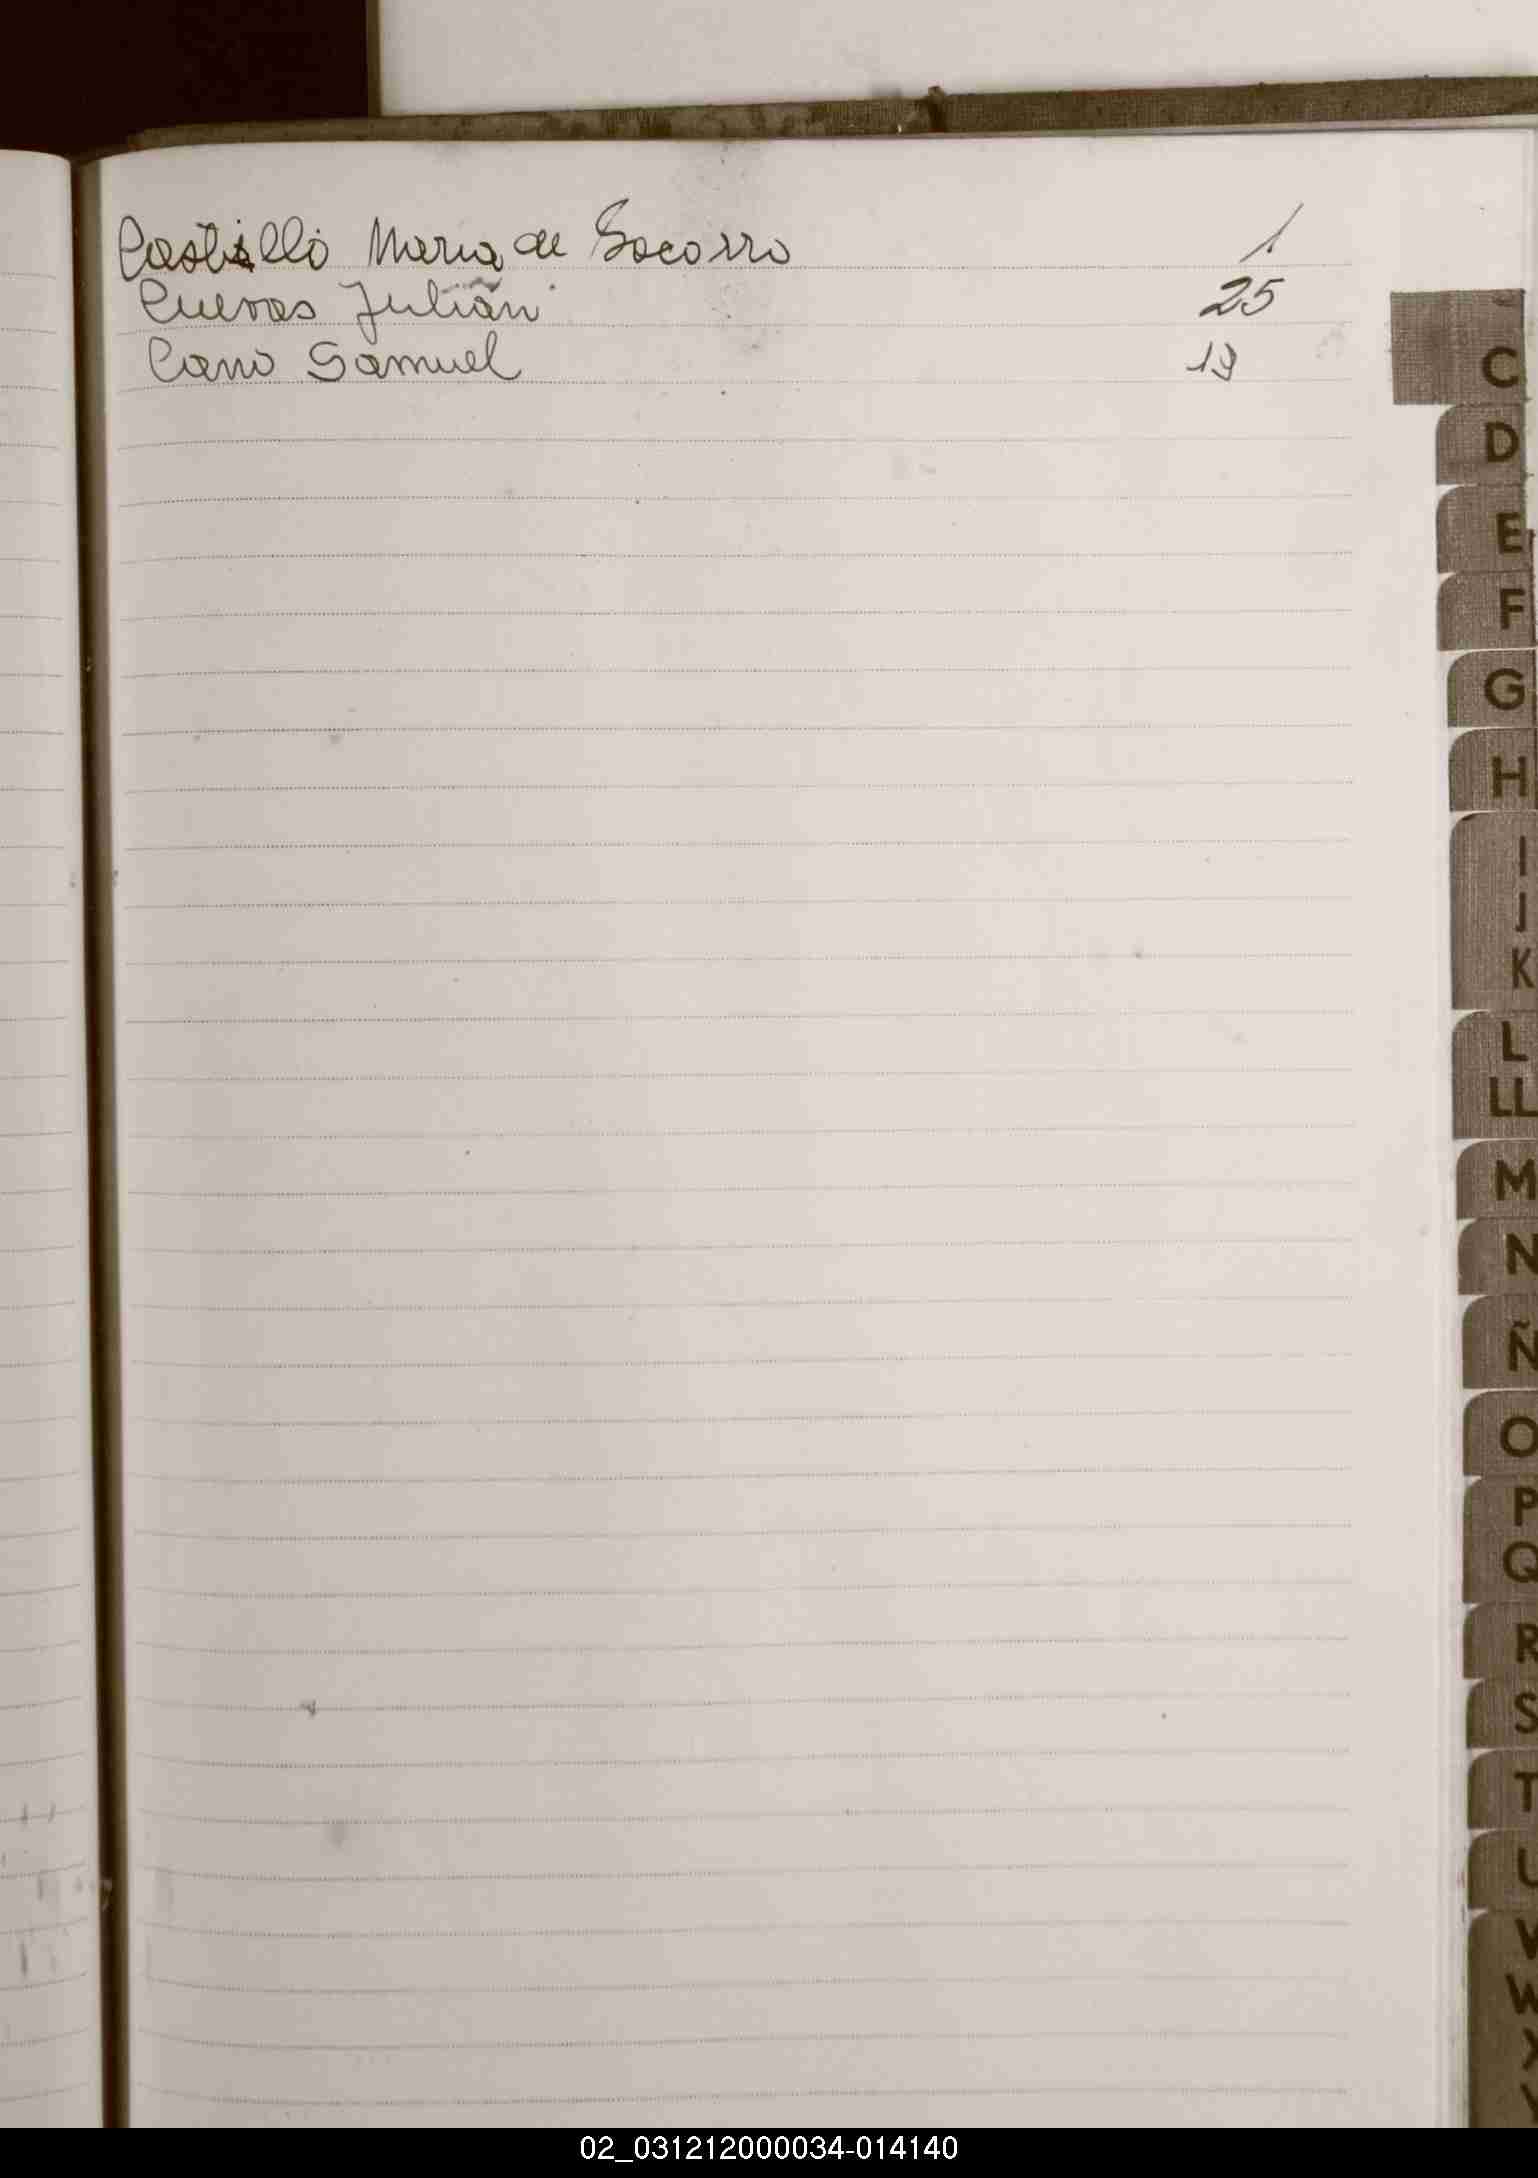 Castillo Maria de Socorro 1
Cuevas Julián 25
Cano Samuel 19
C
D
E
F
G
H
I
J
K
L
LL
M
N
Ñ
O
P
Q
R
S
T
U
V
W
X
Y
02_031212000034-014140